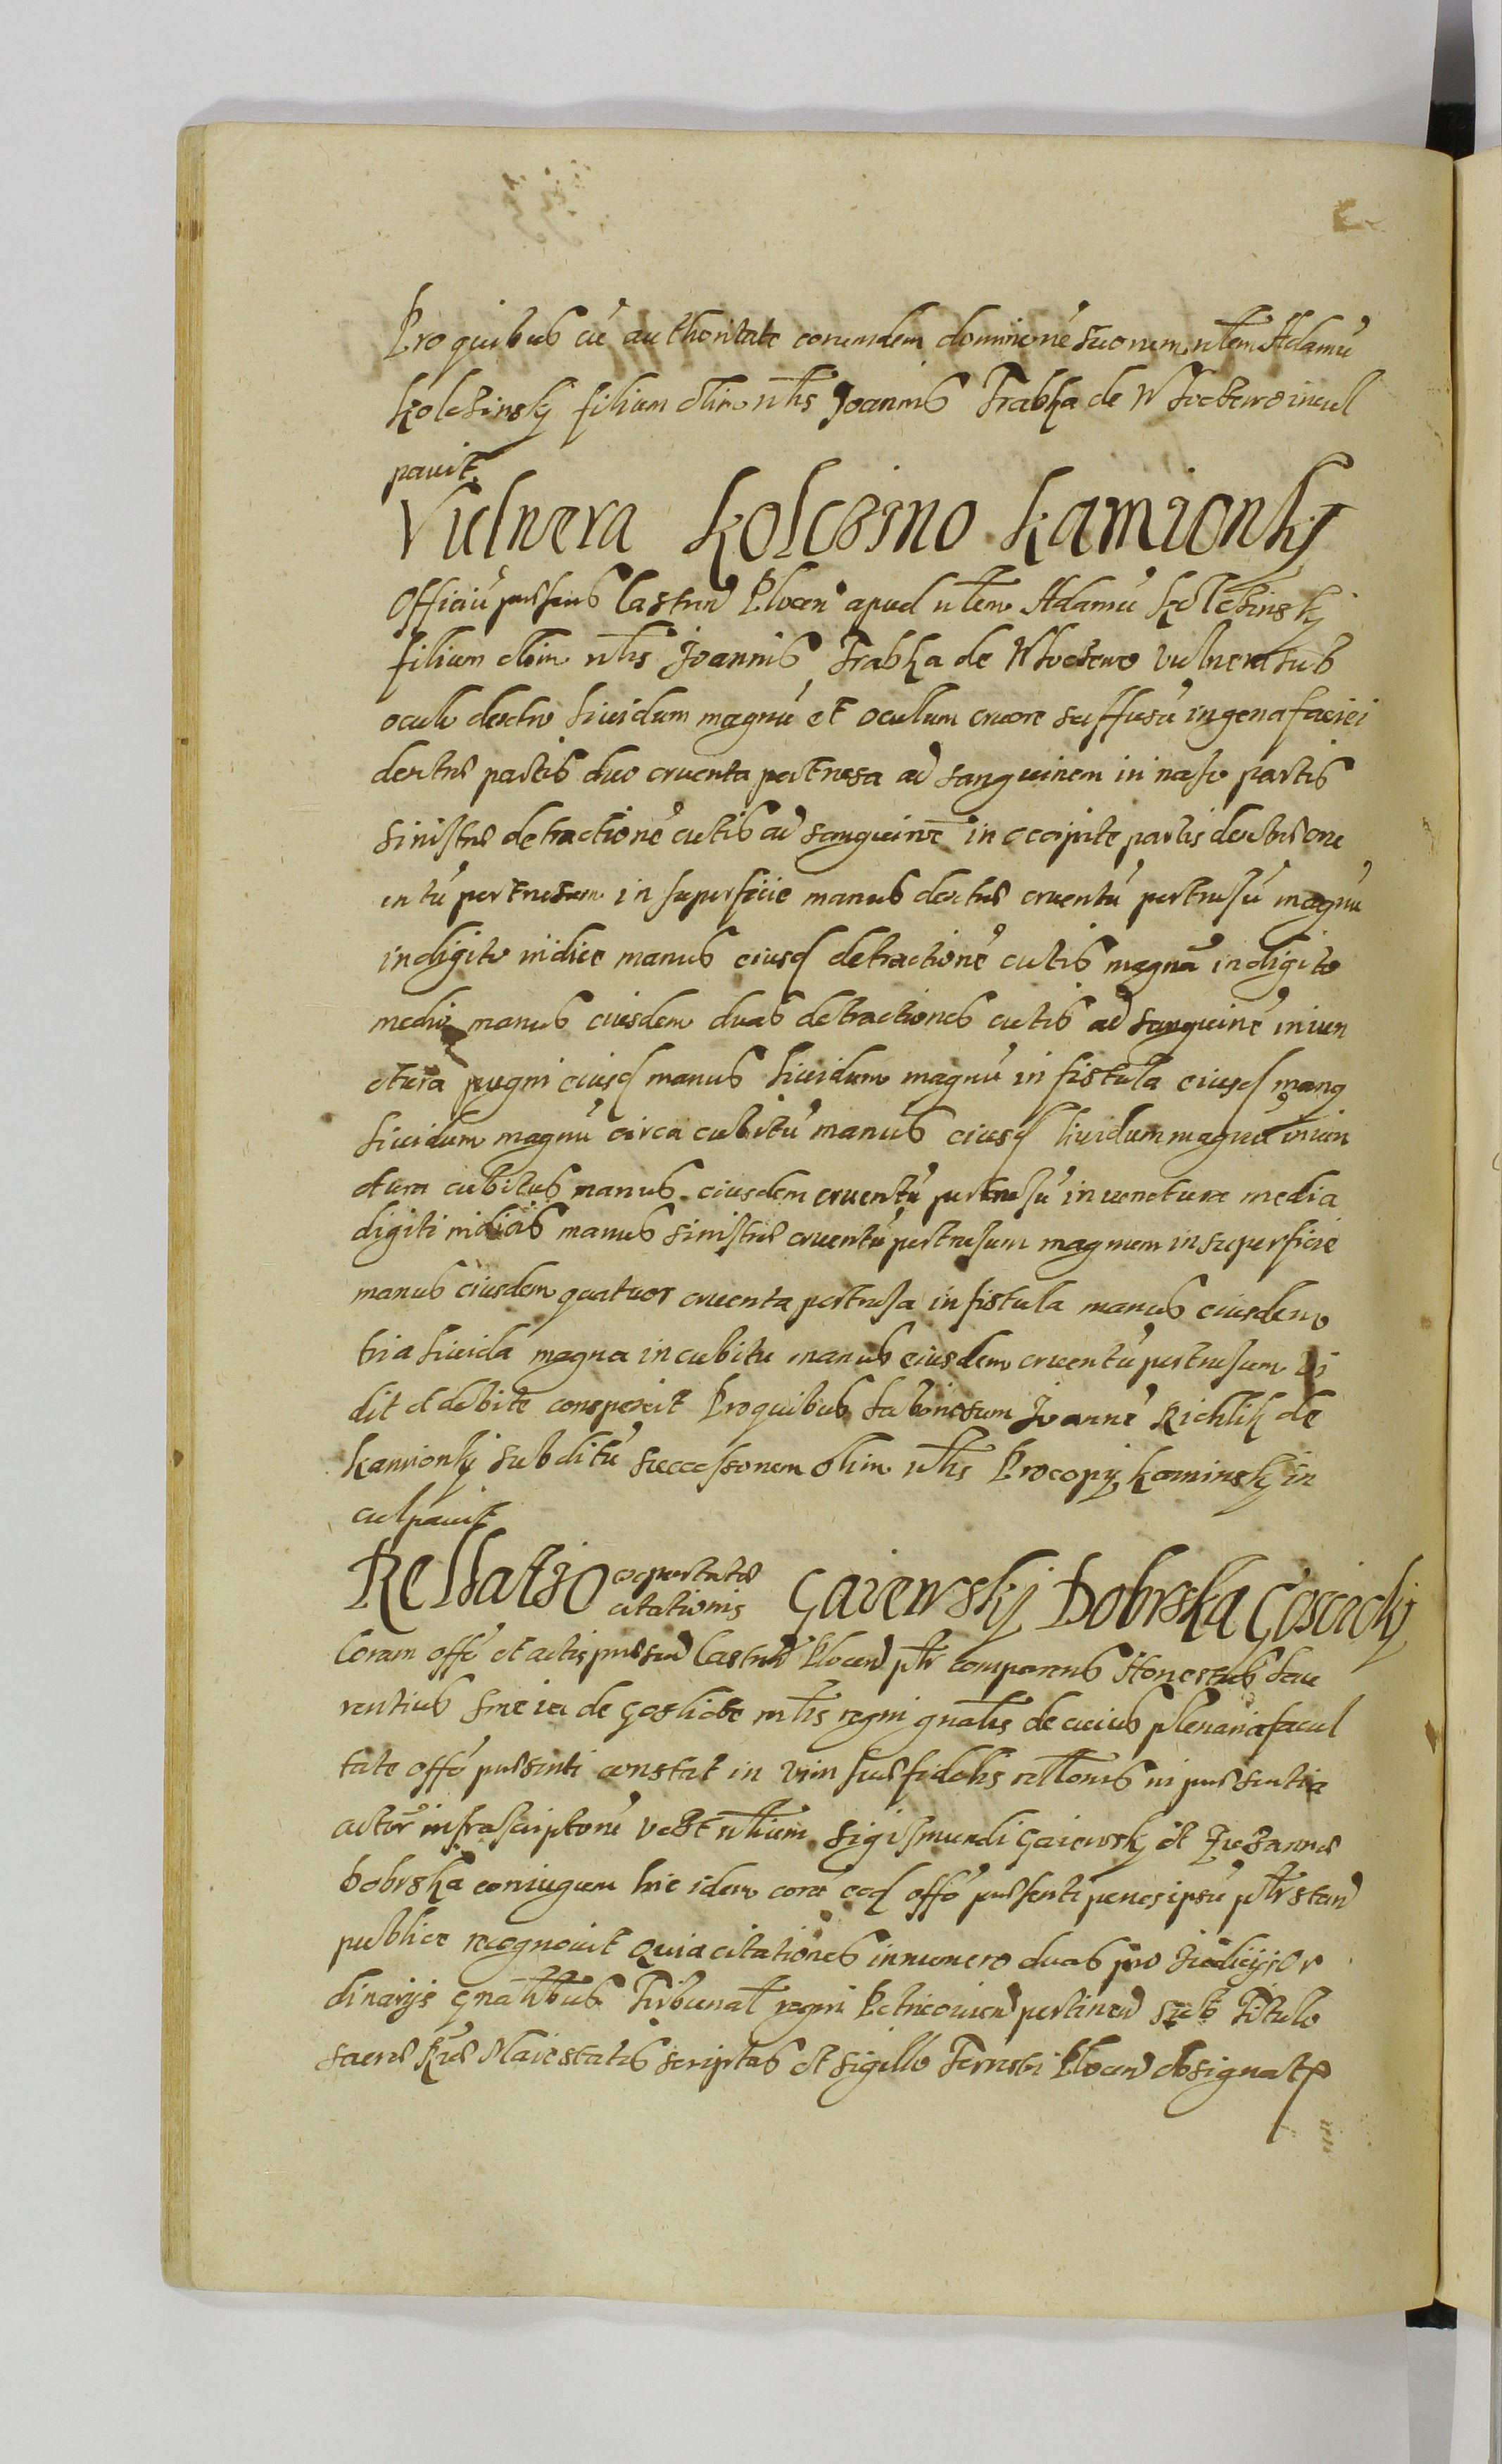 Pro quibus cũ authoritate eorumdem dominorũ suorum nłem Adamũ
Kolczinskÿ filium olim nłis Joannis Trabka de Włoczewo incul
pauit
Vulnera Kolczino Kamionkÿ
Officiũ præsens Castreñ Plocen apud nłem Adamũ Kolczinskj
filium olim nłis Joannis Trabka de Włoczewo vulnera sub
oculo dextro liuidum magnũ et oculum cruore suffusũ in gena faciei
dextræ partis duo cruenta pertrusa ad sanguinem in naso partis
sinistræ detractionẽ cutis ad sanguinẽ in occipite partis dextræ cru
entũ pertrusum in superficie manus dextræ cruentũ pertrusũ magnũ
in digito indice manus eiusd detractionẽ cutis magnã in digito
medio manus eiusdem duas detractiones cutis ad sanguinẽ in iun
ctura pugni eiusd manus liuidum magnũ in fistula eiusd manq
liuidum magnũ circa cubitũ manus eiusd liuidum magnũ in iun
ctura cubitus manus eiusdem cruentũ pertrusũ in iunctura media
digiti indicis manus sinistræ cruentũ pertrusum magnum in superficie
manus eiusdem quatuor cruenta pertrusa in fistula manus eiusdem
tria liuida magna in cubitu manus eiusdem cruentũ pertrusum vi
dit et debite conspexit Pro quibus laboriosum Joannẽ Richlik de
Kamionkj subditũ successorum olim nłis Procopij Kaminskj in
culpauit
Rellatio coportatæ citationis Gaiewskj Dobrska Goscickj
Coram offõ et actis præsen Castreñ Plocen ptr comparens Honestus Lau
rentius Smeia de Goslicze młis regni gnałis de cuius plenaria facul
tate offõ præsenti constat in vim suæ fidelis rełłonis in præsentia
actorũ infrascriptorũ vczt nłium Sigismundi Gaiewskj et Zuzannæ
Dobrska coniugum hic idem corã eod offõ præsenti penes ipsũ ptr stan
publice recognouit Quia citationes in numero duas pro Judicijs or
dinarijs gnałibus Tribunał regni Petricouien pertinen sub Titulo
Sacræ Ræ Maiestatis scriptas et sigillo Terrestri Plocen obsignatas